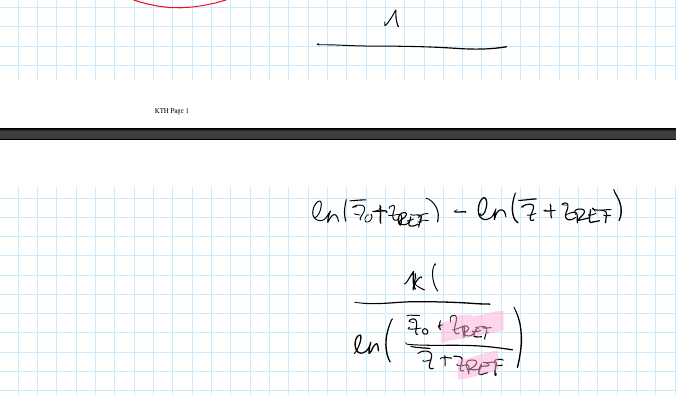 1
KTH Page 1
ln(z̄₀+z_REF) - ln(z̄+z_REF)
k(
ln( z̄₀+z_REF
z̄+z_REF )